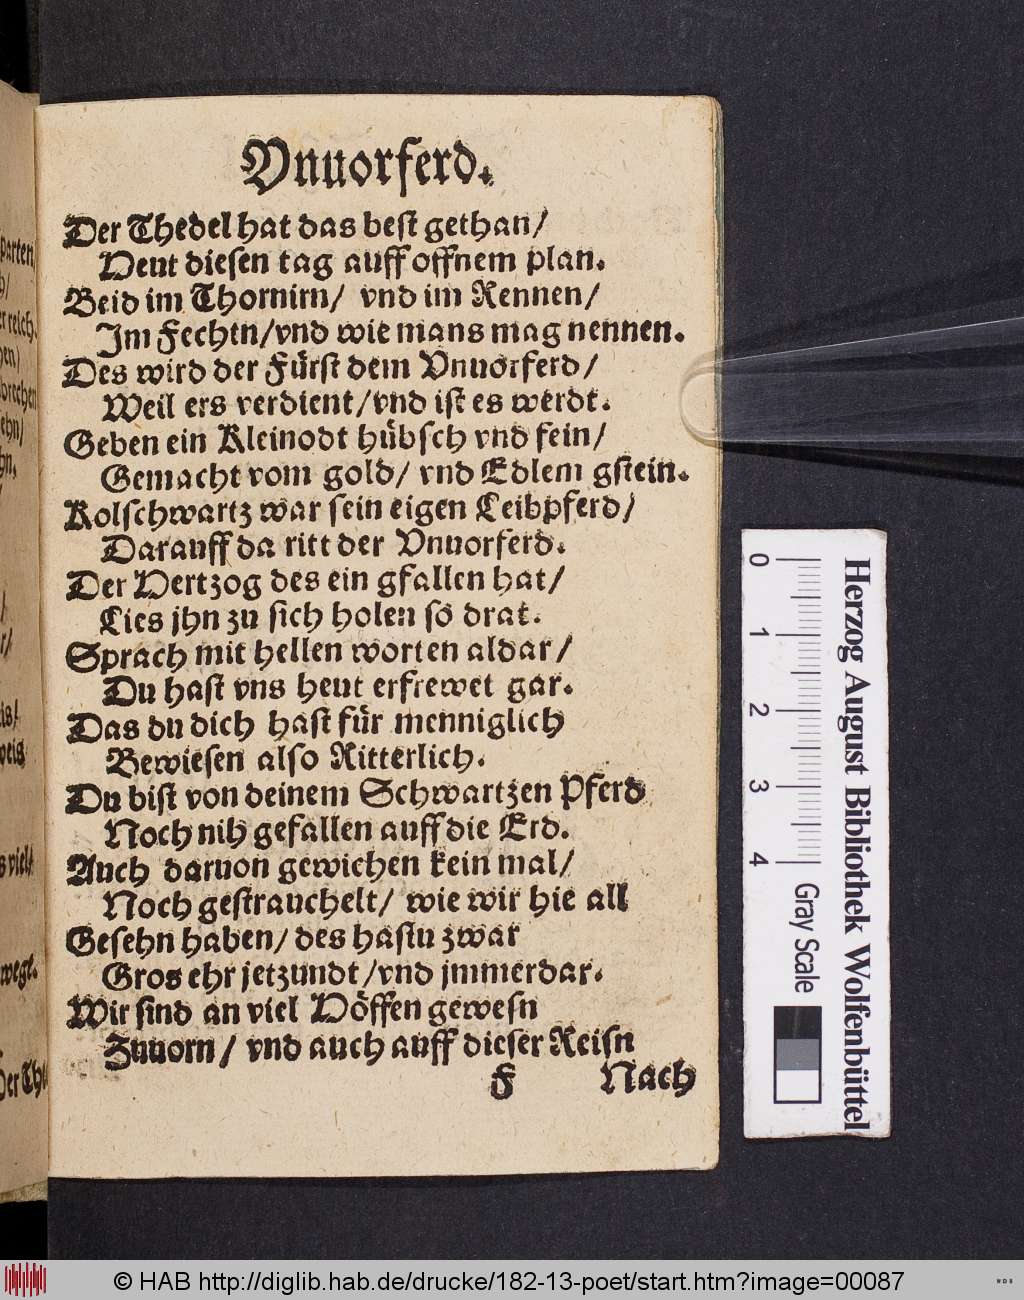 Vnuorferd.
Der Thedel hat das best gethan/
Heut diesen tag auff offnem plan.
Beid im Thornirn/ vnd im Rennen/
Im Fechtn/vnd wie mans mag nennen.
Des wird der Fürst dem Vnuorferd/
Weil ers verdient/vnd ist es werdt.
Geben ein Kleinodt hübsch vnd fein/
Gemacht vom gold/ vnd Edlem gstein.
Kolschwartz war sein eigen Leibpferd/
Darauff da ritt der Vnuorferd.
Der Hertzog des ein gfallen hat/
Lies jhn zu sich holen so drat.
Sprach mit hellen worten aldar/
Du hast vns heut erfrewet gar.
Das du dich hast für menniglich
Bewiesen also Ritterlich.
Du bist von deinem Schwartzen Pferd
Noch nih gefallen auff die Erd.
Auch daruon gewichen kein mal/
Noch gestrauchelt/ wie wir hie all
Gesehn haben/ des hastu zwar
Gros ehr jetzundt/vnd jmmerdar.
Wir sind an viel Höffen gewesn
Zuuorn/ vnd auch auff dieser Reisn
F Nach
0 1 2 3 4
Gray Scale
Herzog August Bibliothek Wolfenbüttel
© HAB http://diglib.hab.de/drucke/182-13-poet/start.htm?image=00087